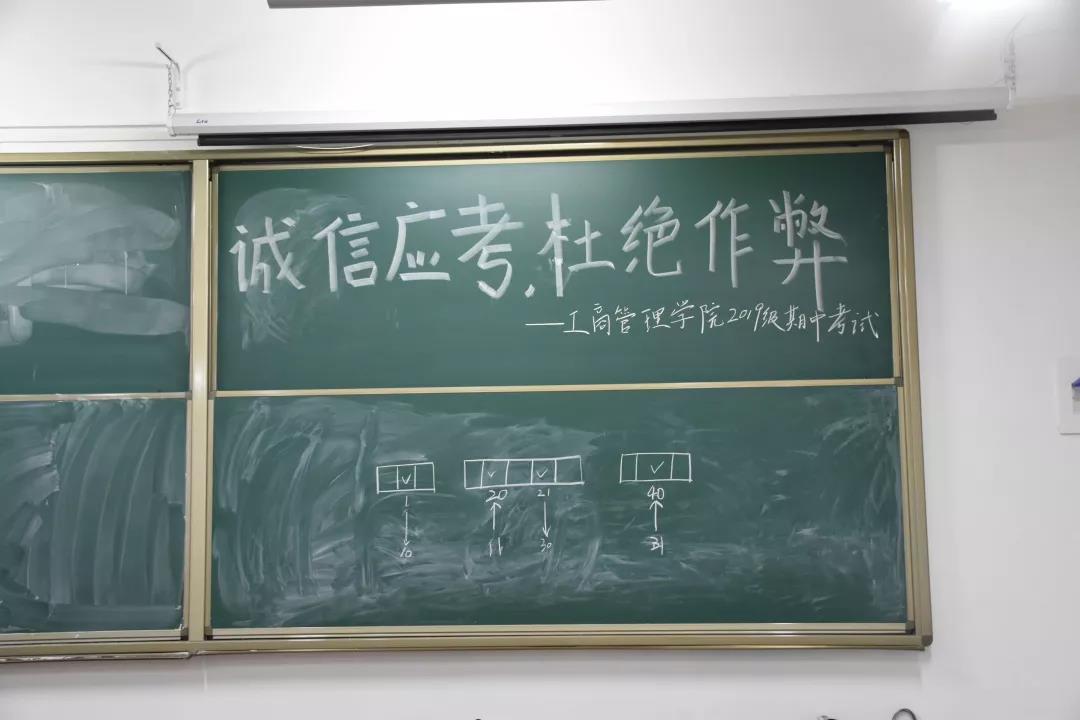 诚信应考,杜绝作弊
——工商管理学院2019级期中考试
1 20 21 40
10 11 30 31